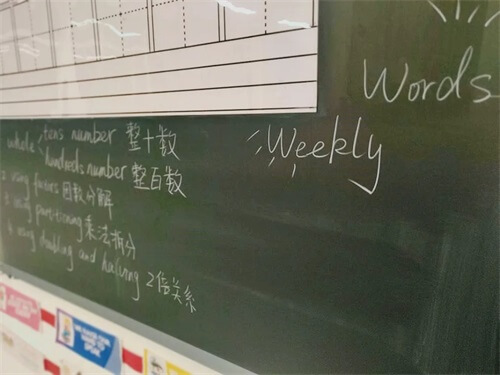 Words
Weekly
whole tens number 整十数
hundreds number 整百数
2 using factors 因数分解
3 using partitioning 乘法拆分
4 using doubling and halving 2倍关系